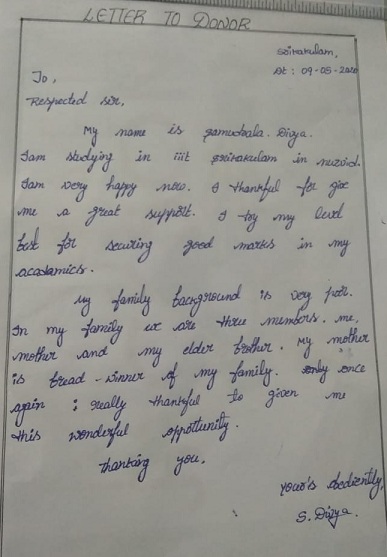 LETTER TO DONOR
Srirakulam,
Dt : 09-05-2020
To,
Respected sir,
My name is Divya.
Iam studying in iiit srirakulam in nuzvid.
Iam very happy now. I thankful for give
me a great support. I try my level
best for securing good marks in my
acadamics.
My family background is very poor.
In my family we are three members. me,
mother and my elder brother. My mother
is bread-winner of my family. only once
again i really thankful to given me
this wonderful oppottunity.
Thanking you,
your's obediently,
S. Divya.